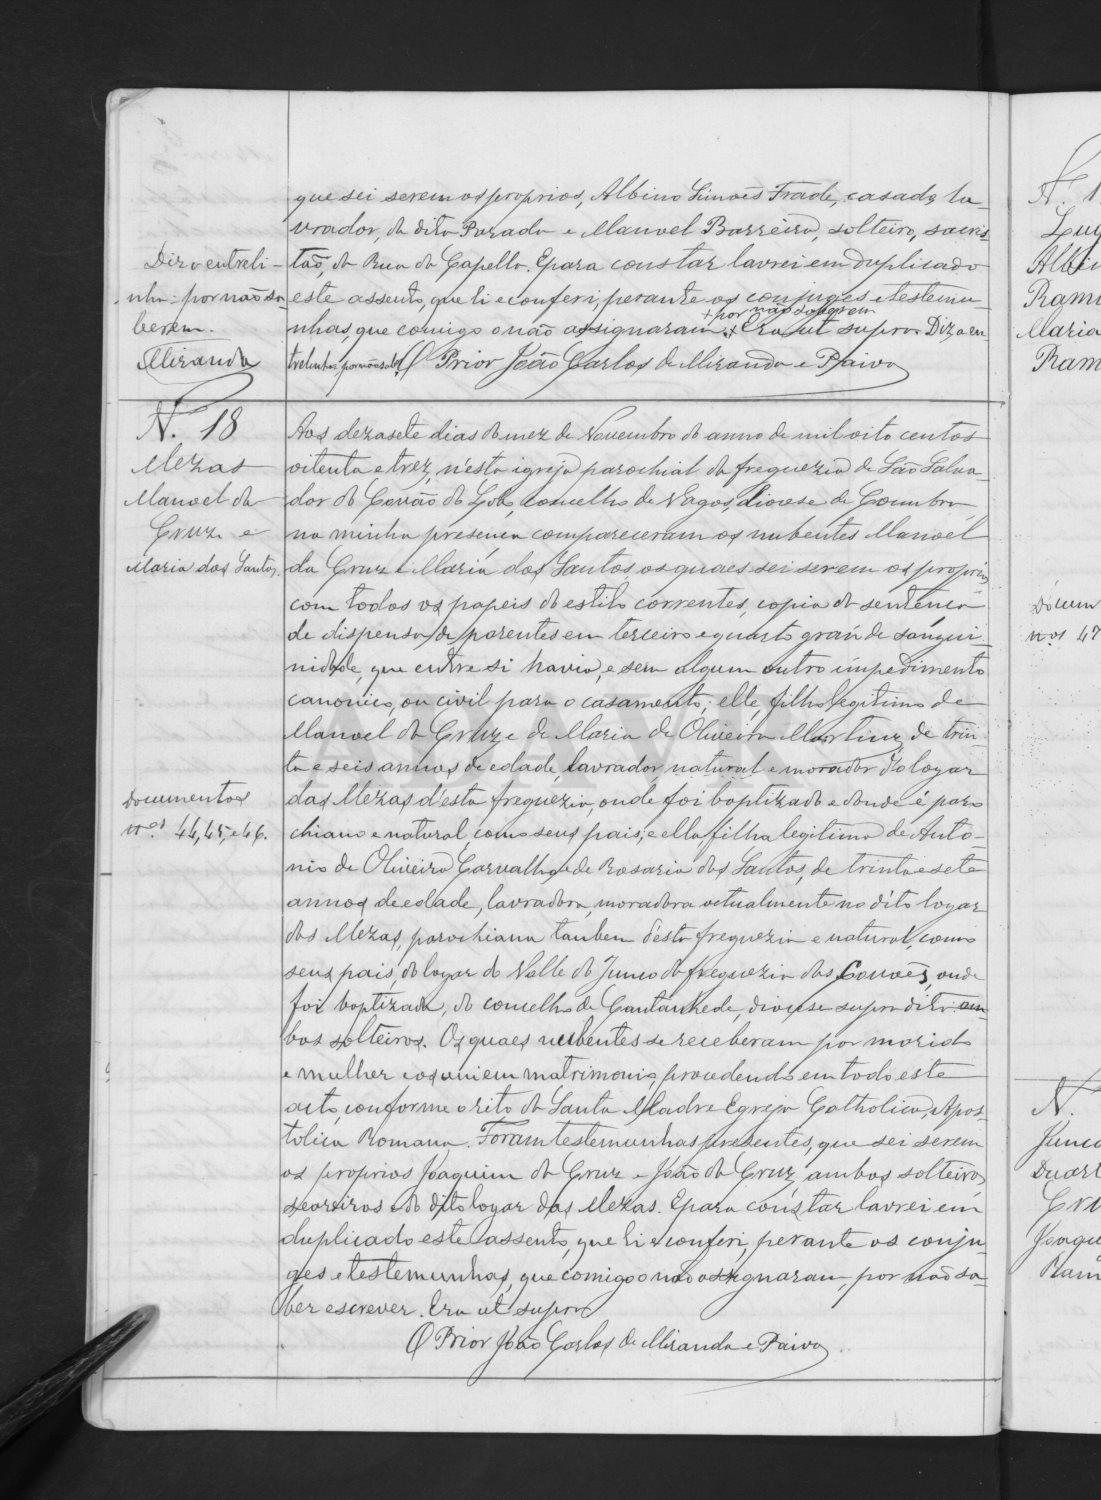 que sei serem os proprios, Albino Simões Frade, casado, la-
vrador, da dita Parada e Manoel Barreira, solteiro, sacris-
tão, da Rua da Capella. E para constar lavrei em duplicado
este assento, que li e conferi, perante os conjuges e testemu-
+ por não saberem
nhas, que comigo o não assignaram. + Era ut supra. Diz a en-
trelinha: por não saber. O Prior João Carlos de Miranda e Paiva
Diz a entreli-
nha: por não sa-
berem.
Miranda
N.º 18
Mezas
Manoel da
Cruz e
Maria dos Santos.
Documentos
n.os 44, 45, e 46.
Aos dezasete dias do mez de Novembro do anno de mil oito centos
oitenta e trez, n'esta igreja parochial da freguezia de São Salva-
dor do Covão do Lobo, concelho de Vagos, diocese de Coimbra,
na minha presença compareceram os nubentes Manoel
da Cruz e Maria dos Santos, os quaes sei serem os proprios,
com todos os papeis do estilo correntes, copia da sentença
de dispensa de parentes em terceiro e quarto grau de sangui-
nidade, que entre si havia, e sem algum outro impedimento
canonico, ou civil para o casamento; elle, filho legitimo de
Manoel da Cruz e de Maria de Oliveira Martins, de trin-
ta e seis annos de edade, lavrador, natural e morador do logar
das Mezas d'esta freguezia, onde foi baptizado e donde é paro-
chiano e natural, como seus pais; e ella filha legitima de Anto-
nio de Oliveira Carvalho e de Rosaria dos Santos, de trinta e sete
annos de edade, lavradora, moradora actualmente no dito logar
das Mezas, parochiana tanben d'esta freguezia e natural, como
seus pais, do logar do Valle do Junco da freguezia dos Covões, onde
foi baptizada, do concelho de Cantanhede, diocese supra dita am-
bos solteiros. Os quaes nubentes se receberam por marido
e mulher e os uni em matrimonio, procedendo em todo este
acto, conforme o rito da Santa Madre Egreja Catholica, Apos-
tolica Romana. Foram testemunhas presentes, que sei serem
os proprios Joaquim da Cruz e João da Cruz, ambos solteiros,
seareiros e do dito logar das Mezas. E para constar lavrei em
duplicado este assento, que li e conferi, perante os conju-
ges e testemunhas, que comigo o não assignaram, por não sa-
ber escrever. Era ut supra
O Prior João Carlos de Miranda e Paiva
N. 1
Albi
Rami
Maria
Ram
Docum
n.os 47
N.
Duart
Cru
Joaqu
Ram